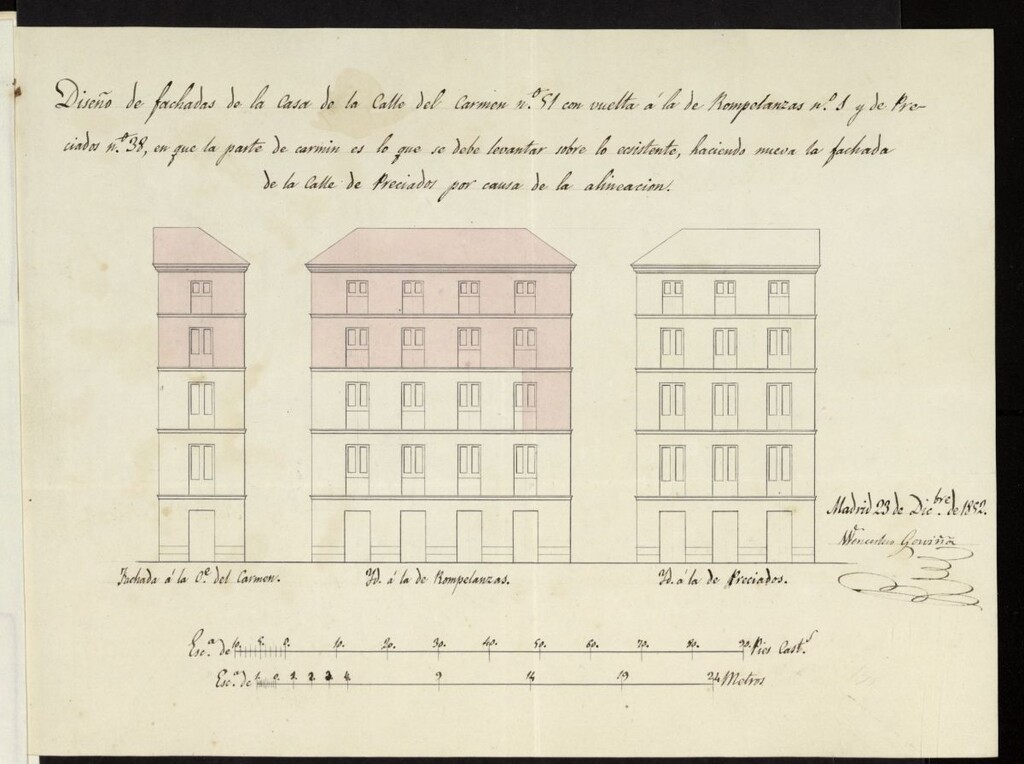 Diseño de fachadas de la Casa de la Calle del Carmen n.º 51 con vuelta á la de Rompelanzas n.º 1 y de Pre-
ciados n.º 38, en que la parte de carmin es lo que se debe levantar sobre lo ecsistente, haciendo nueva la fachada
de la Calle de Preciados por causa de la alineacion.
Madrid 23 de Dic.bre de 1852.
Fachada á la C.e del Carmen.
Yd. á la de Rompelanzas.
Yd. á la de Preciados.
Esc.a de 10. 5. 0. 10. 20. 30. 40. 50. 60. 70. 80. 90. Pies Cast.s
Esc.a de 1. 0. 1. 2. 3. 4. 9 14 19 24 Metros